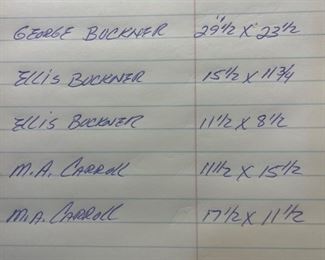 GEORGE BUCKNER 29 1/2 X 23 1/2
Ellis Buckner 15 1/2 X 11 3/4
Ellis Buckner 11 1/2 X 8 1/2
M.A. Carroll 11 1/2 X 15 1/2
M.A. Carroll 17 1/2 X 11 1/2